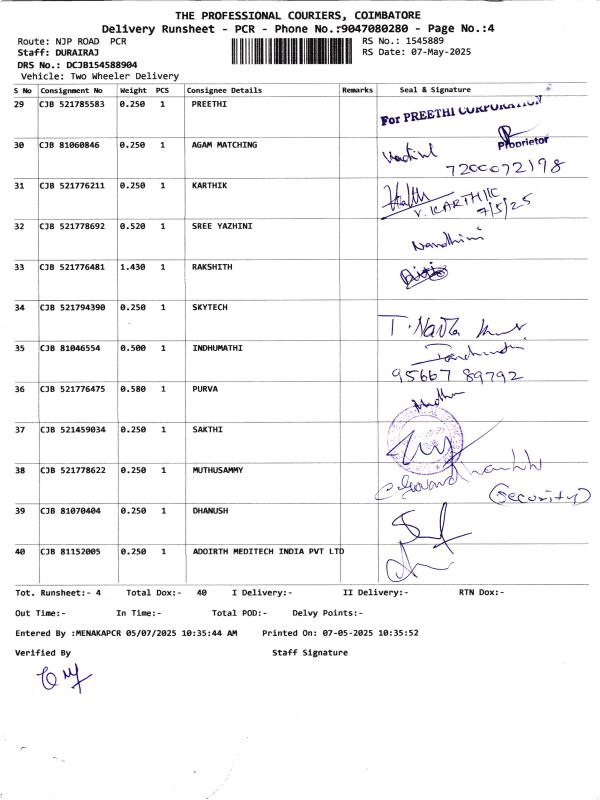 THE PROFESSIONAL COURIERS, COIMBATORE
Delivery Runsheet - PCR - Phone No.:9047080280 - Page No.:4
Route: NJP ROAD PCR
RS No.: 1545889
Staff: DURAIRAJ
RS Date: 07-May-2025
DRS No.: DCJB154588904
Vehicle: Two Wheeler Delivery
S No Consignment No Weight PCS Consignee Details Remarks Seal & Signature
29 CJB 521785583 0.250 1 PREETHI
For PREETHI CORPORATION
Proprietor
30 CJB 81060846 0.250 1 AGAM MATCHING
7200072198
31 CJB 521776211 0.250 1 KARTHIK
V. KARTHIC
7/5/25
32 CJB 521778692 0.520 1 SREE YAZHINI
Nandhini
33 CJB 521776481 1.430 1 RAKSHITH
34 CJB 521794390 0.250 1 SKYTECH
35 CJB 81046554 0.500 1 INDHUMATHI
95667 89792
36 CJB 521776475 0.580 1 PURVA
37 CJB 521459034 0.250 1 SAKTHI
38 CJB 521778622 0.250 1 MUTHUSAMMY
(Security)
39 CJB 81070404 0.250 1 DHANUSH
40 CJB 81152005 0.250 1 ADOIRTH MEDITECH INDIA PVT LTD
Tot. Runsheet:- 4 Total Dox:- 40 I Delivery:- II Delivery:- RTN Dox:-
Out Time:- In Time:- Total POD:- Delvy Points:-
Entered By :MENAKAPCR 05/07/2025 10:35:44 AM Printed On: 07-05-2025 10:35:52
Verified By Staff Signature